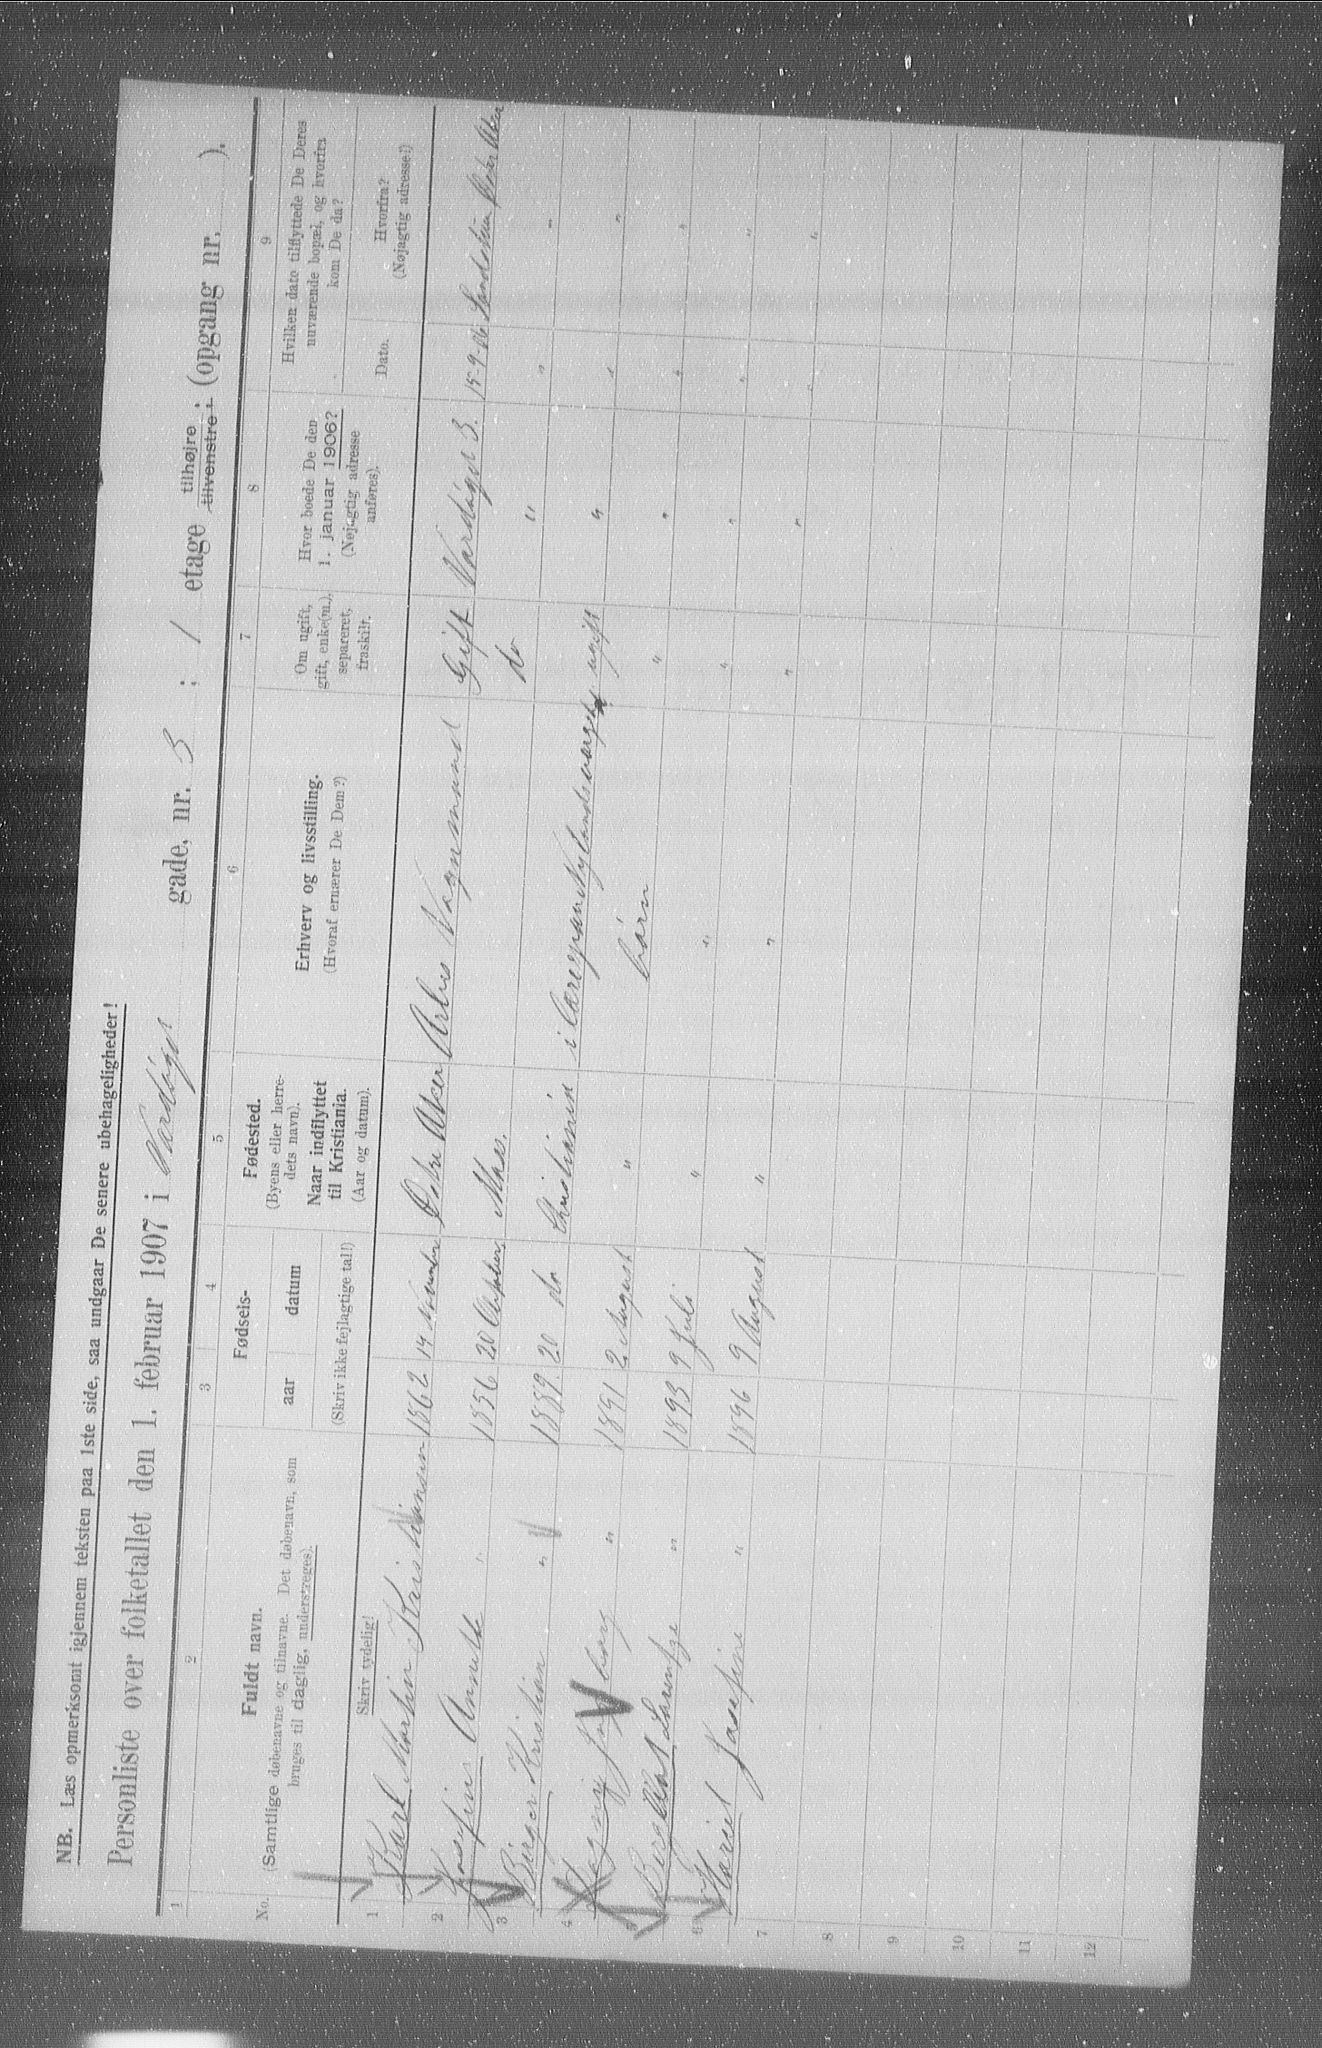 NB. Læs opmerksomt igjennem teksten paa 1ste side, saa undgaar De senere ubehageligheder!
Personliste over folketallet den 1. februar 1907 i Vardøger gade, nr. 3 ; 1 etage tilhøjre tilvenstre ; (opgang nr. ).
1 2 3 4 5 6 7 8 9
No.
Fuldt navn.
(Samtlige døbenavne og tilnavne. Det døbenavn, som
bruges til daglig, understreges).
Skriv tydelig!
Fødsels-
aar datum
(Skriv ikke fejlagtige tal!)
Fødested.
(Byens eller herre-
dets navn).
Naar indflyttet
til Kristiania.
(Aar og datum).
Erhverv og livsstilling.
(Hvoraf ernærer De Dem?)
Om ugift,
gift, enke(m.),
separeret,
fraskilt.
Hvor boede De den
1. januar 1906?
(Nøjagtig adresse
anføres).
Hvilken dato tilflyttede De Deres
nuværende bopæl, og hvorfra
kom De da?
Dato.
Hvorfra?
(Nøjagtig adresse!)
1 Karl Martin Kristiansen 1862 14 November Østre Aker Arbs Vognmand Gift Vardøger 3. 15-9-06 Østre Aker
2 Josefine Annette " 1856 20 Oktober Moss. do " " "
3 Birger Kristian " 1889 20 do Christiania i ugift " " "
4 Ragna " 1891 2 August " børn " " " "
5 Lorentze " 1893 9 Juli " " " " " "
6 Hariet Josefine " 1896 9 August " " " " " "
7
8
9
10
11
12